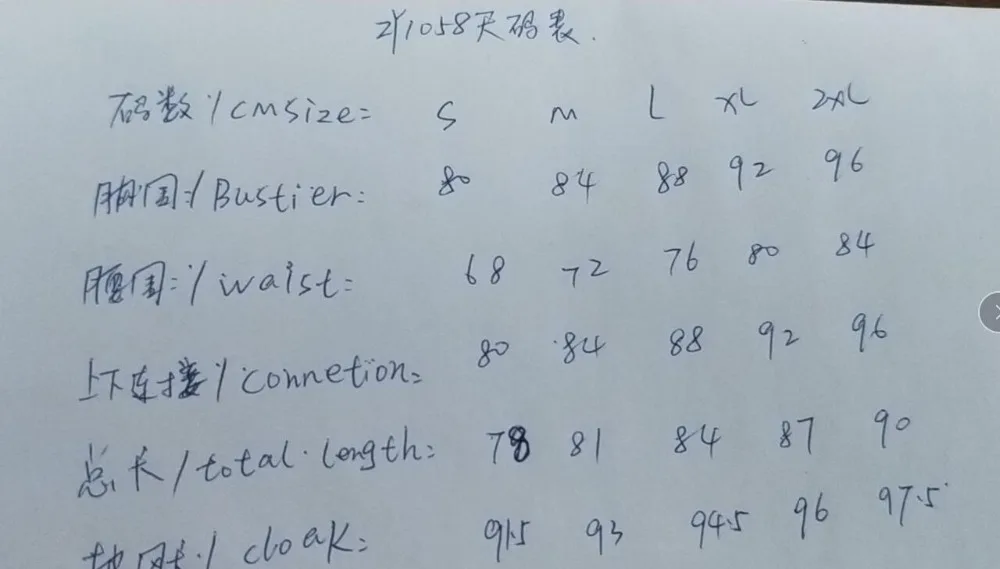 ZY1058尺码表.
码数/cmsize= S M L XL 2XL
胸围:/Bustier: 80 84 88 92 96
腰围:/waist: 68 72 76 80 84
上下连接/connetion: 80 84 88 92 96
总长/total.length: 78 81 84 87 90
cloak: 91.5 93 94.5 96 97.5